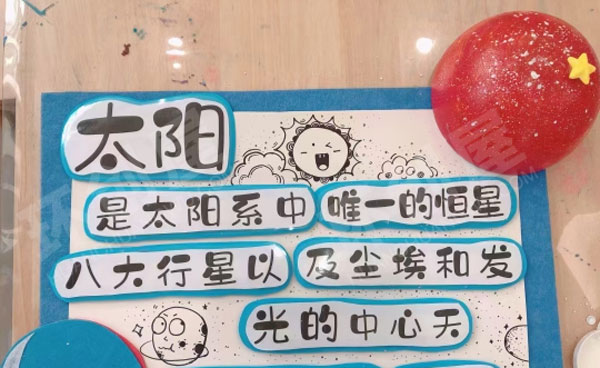 太阳
是太阳系中唯一的恒星
八大行星以及尘埃和发
光的中心天